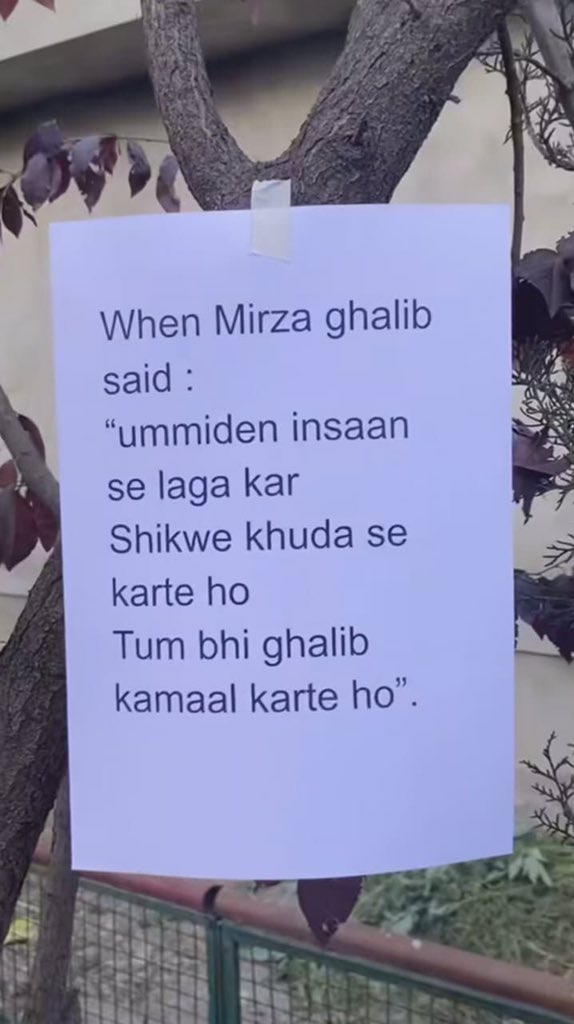 When Mirza ghalib
said :
“ummiden insaan
se laga kar
Shikwe khuda se
karte ho
Tum bhi ghalib
kamaal karte ho”.